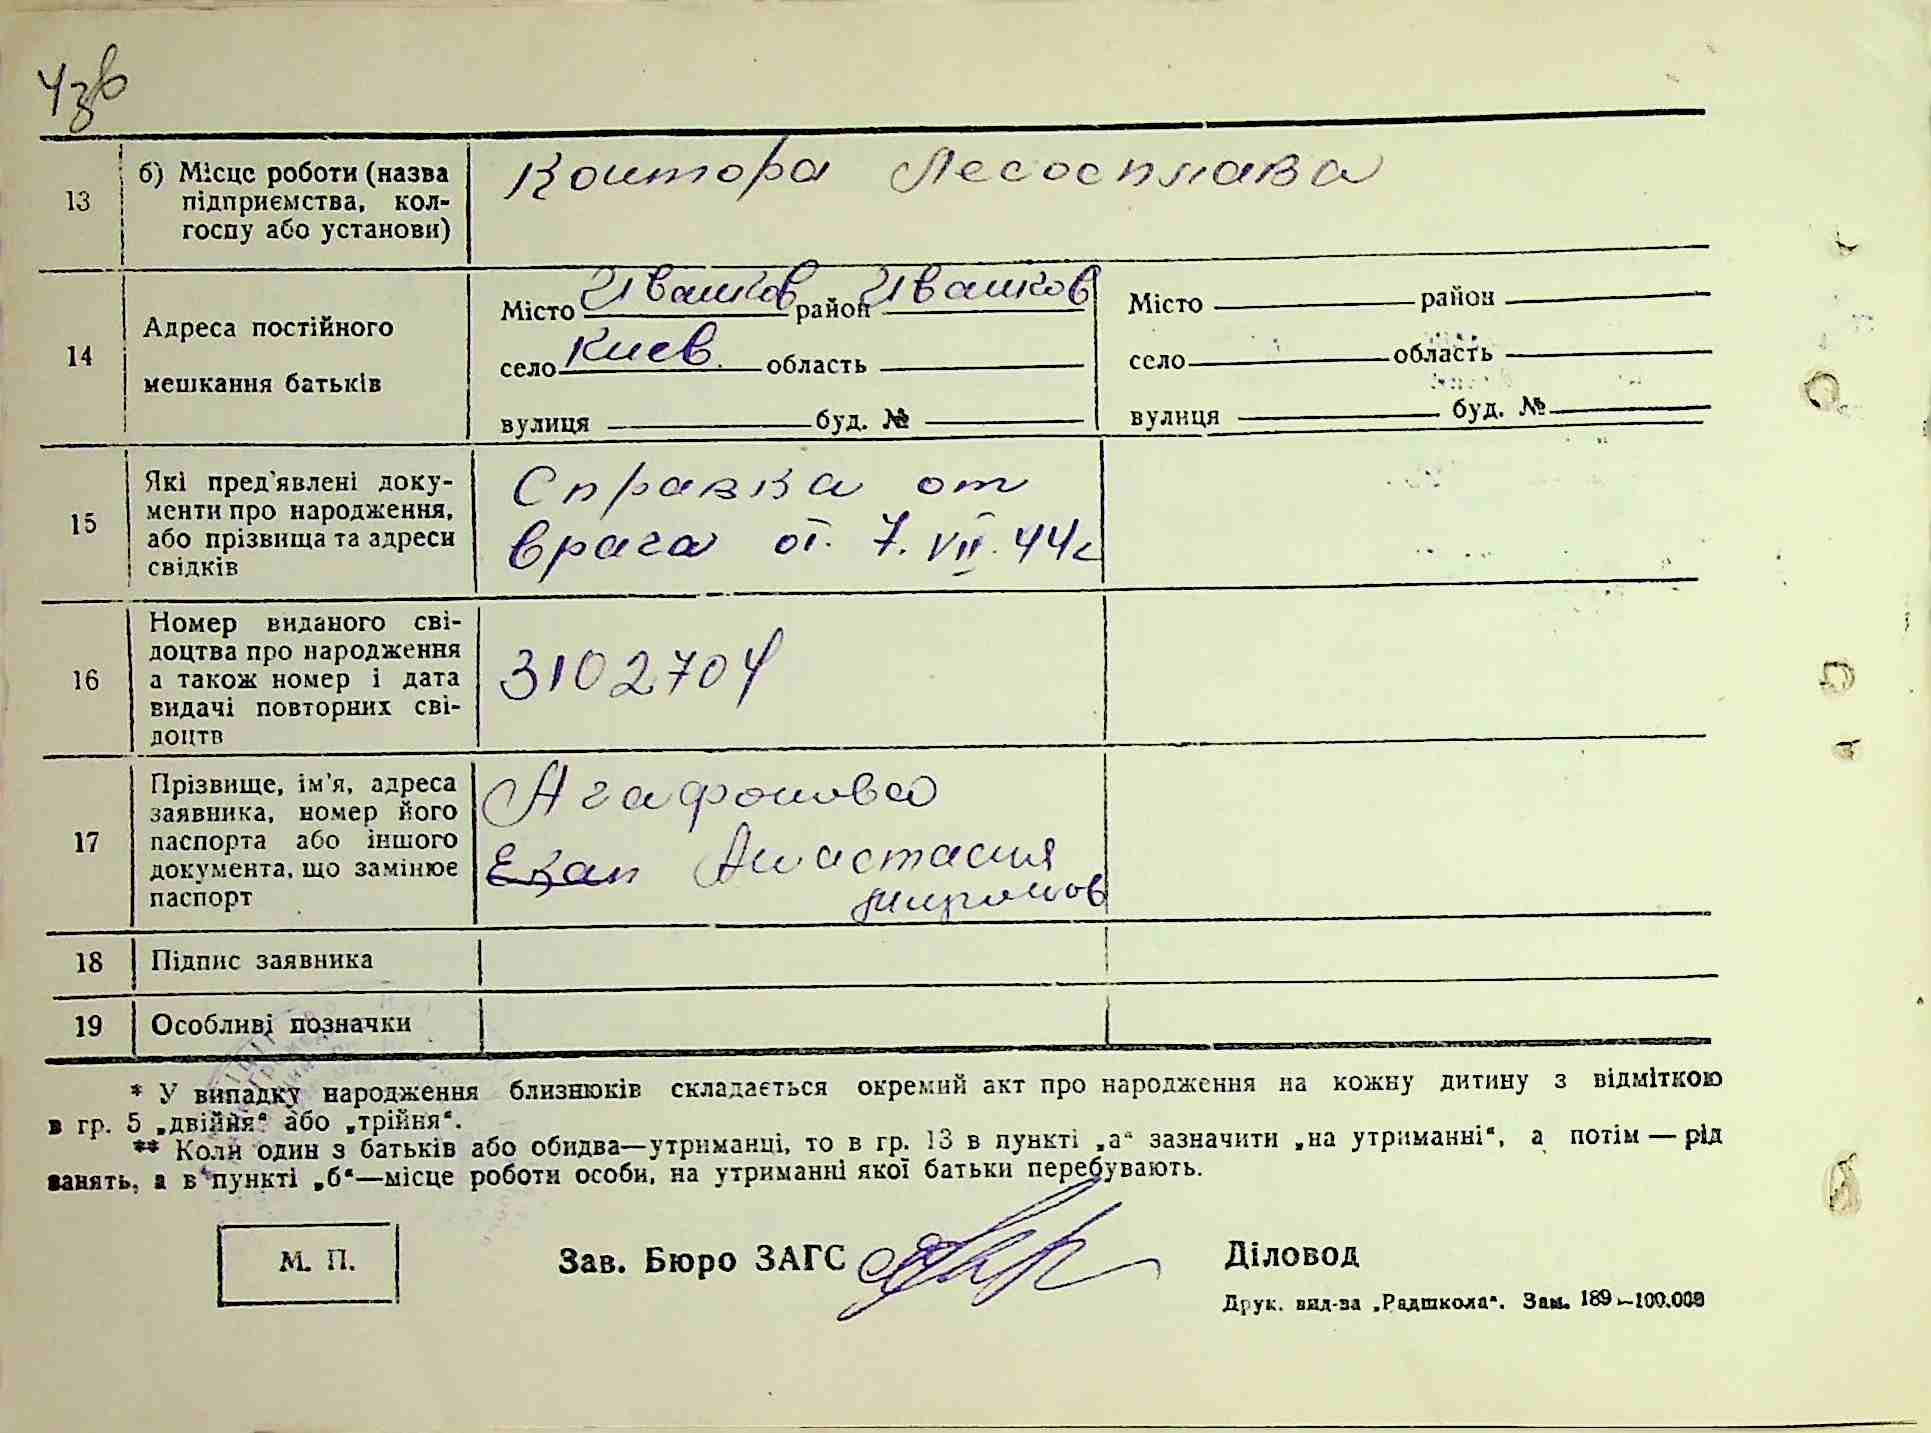 43в
13 б) Місце роботи (назва Контора Лесосплава
підприємства, кол-
госпу або установи)
14 Адреса постійного мешкання батьків
Місто Иванков район Иванков Місто район
село Киев область село область
вулиця буд. № вулиця буд. №
15 Які пред'явлені доку- Справка от
менти про народження, врача от. 7.VII.44г
або прізвища та адреси
свідків
16 Номер виданого сві- 3102704
доцтва про народження
а також номер і дата
видачі повторних сві-
доцтв
17 Прізвище, ім'я, адреса Агафонова
заявника, номер його
паспорта або іншого Екат Анастасия
документа, що замінює
паспорт
18 Підпис заявника
19 Особливі позначки
* У випадку народження близнюків складається окремий акт про народження на кожну дитину з відміткою
в гр. 5 „двійня“ або „трійня“.
** Коли один з батьків або обидва—утриманці, то в гр. 13 в пункті „а“ зазначити „на утриманні“, а потім — рід
занять, а в пункті „б“—місце роботи особи, на утриманні якої батьки перебувають.
М. П. Зав. Бюро ЗАГС Діловод
Друк. вид-ва „Радшкола“. Зам. 189—100.000